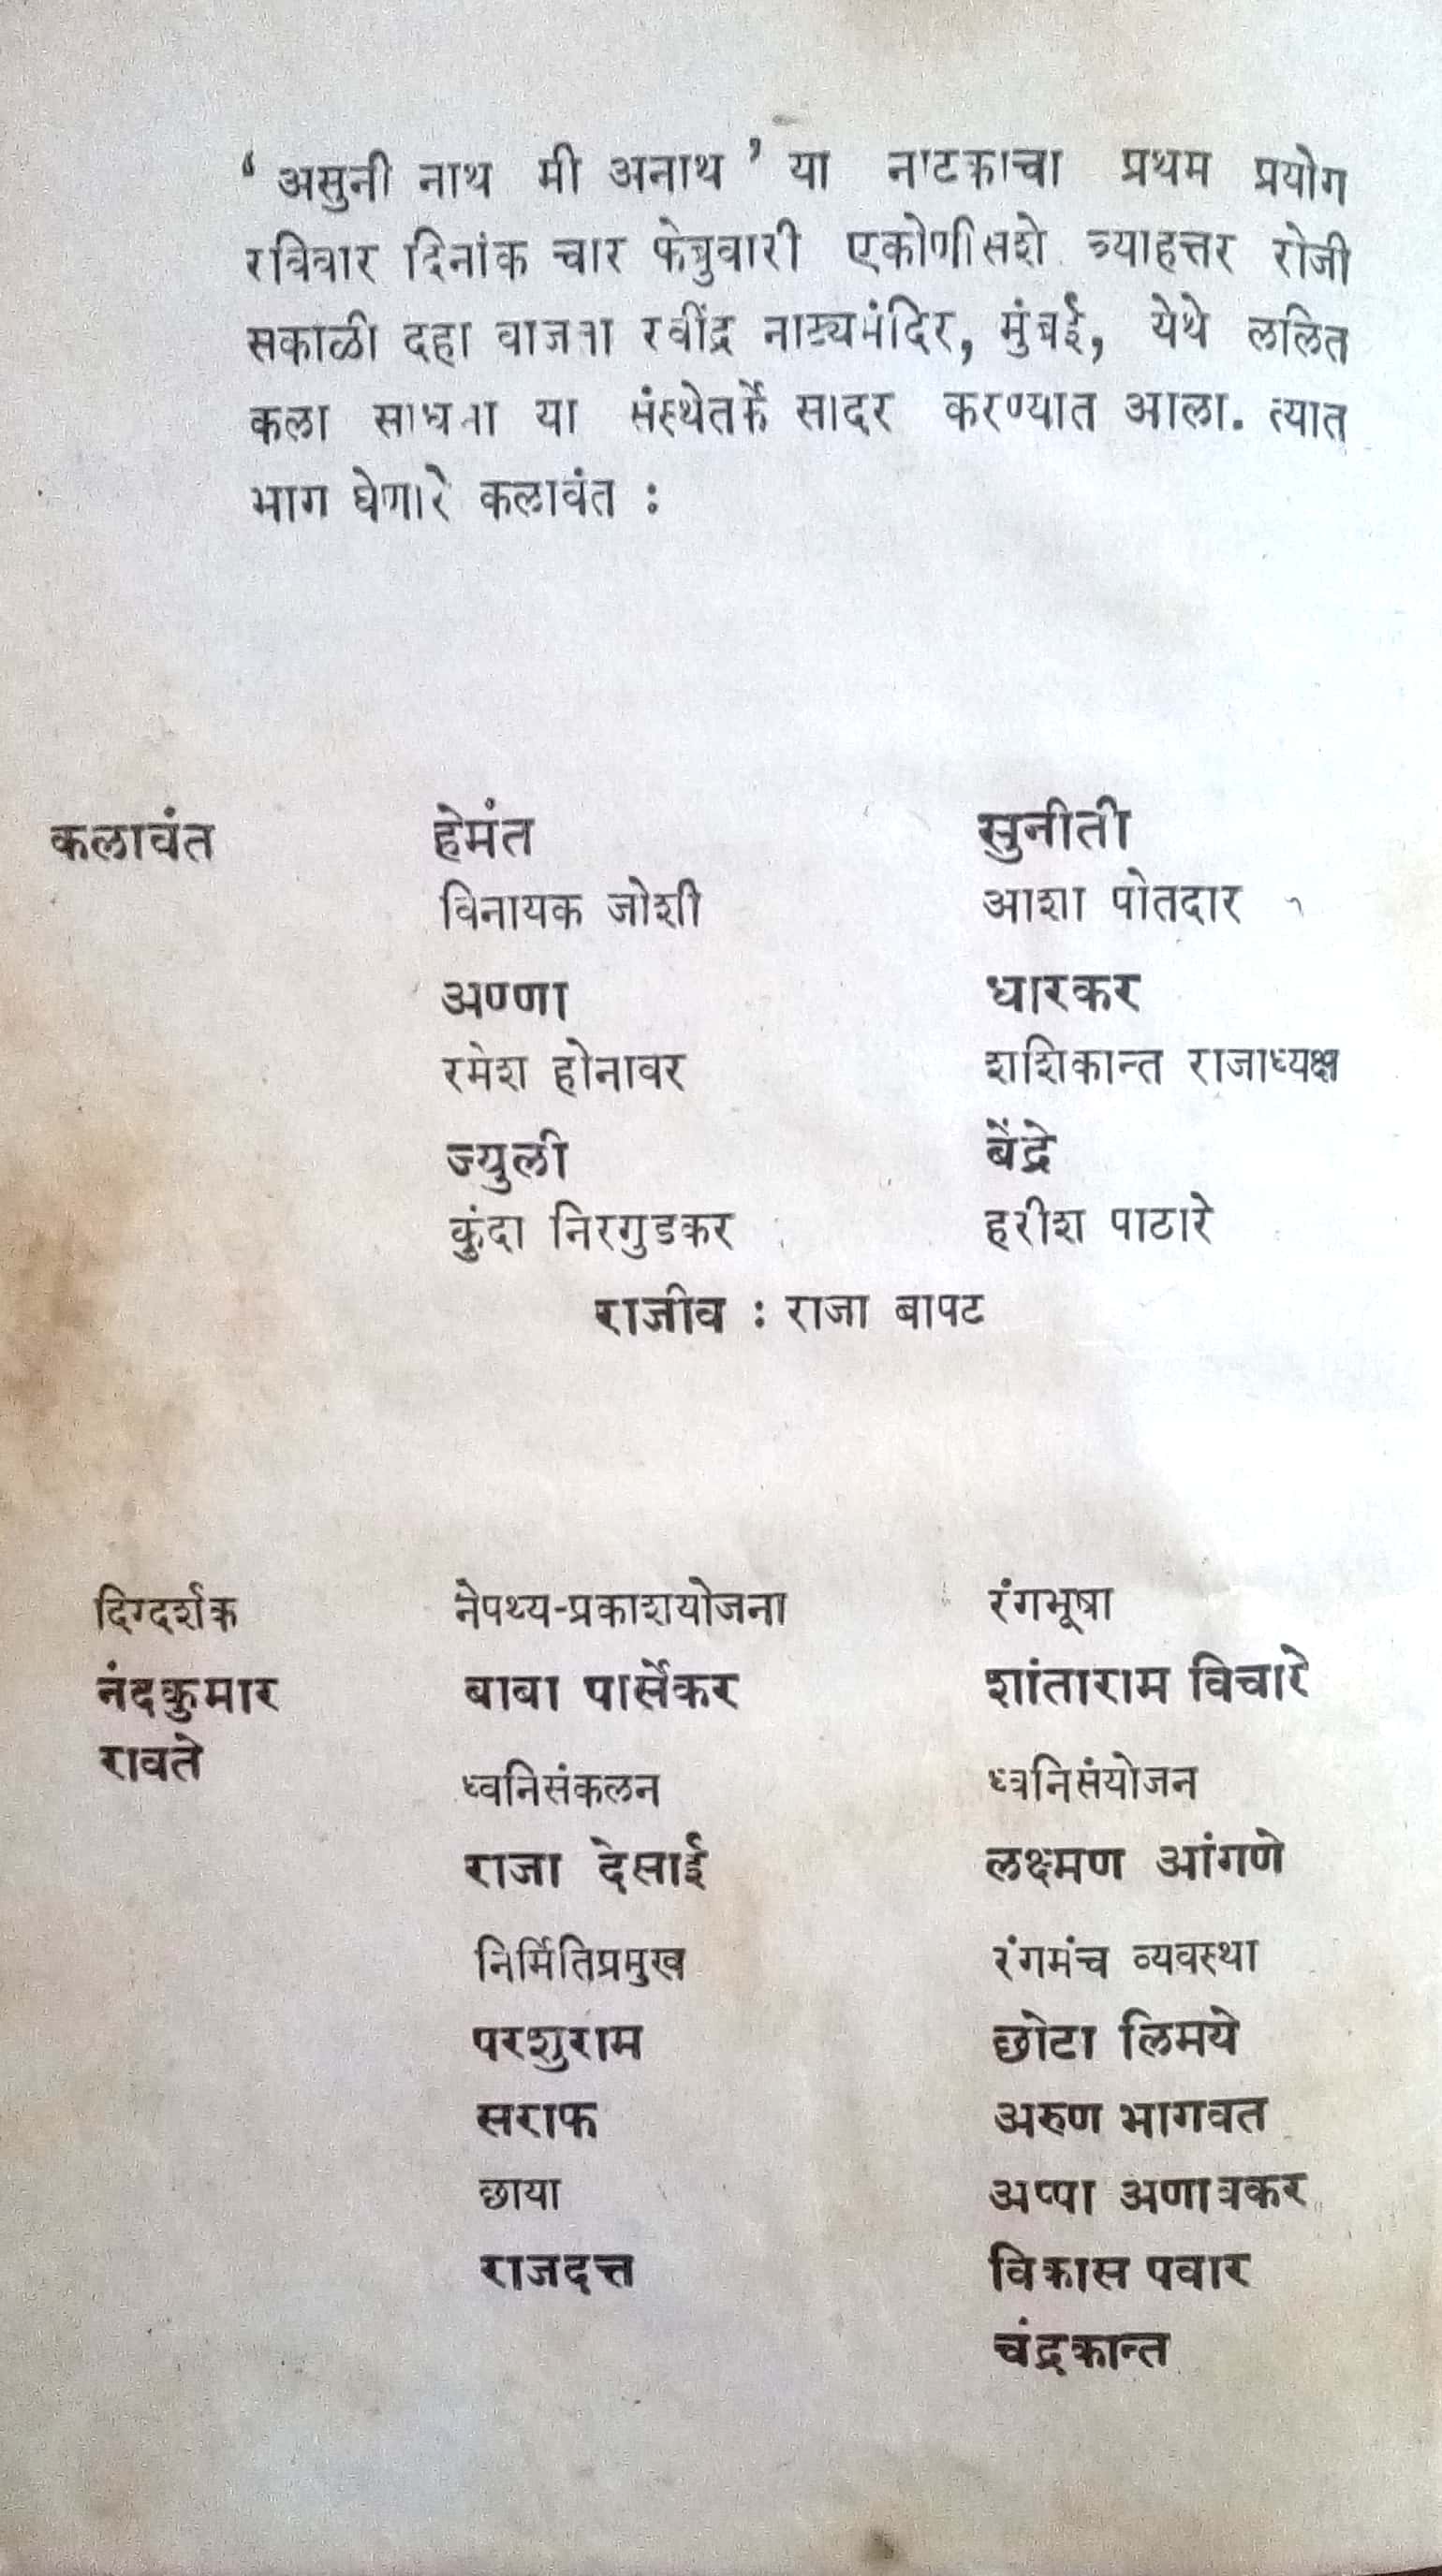 ‘ असुनी नाथ मी अनाथ ’ या नाटकाचा प्रथम प्रयोग
रविवार दिनांक चार फेब्रुवारी एकोणीसशे त्र्याहत्तर रोजी
सकाळी दहा वाजता रवींद्र नाट्यमंदिर, मुंबई, येथे ललित
कला साधना या संस्थेतर्फे सादर करण्यात आला. त्यात
भाग घेणारे कलावंत :
कलावंत हेमंत सुनीती
विनायक जोशी आशा पोतदार
अण्णा धारकर
रमेश होनावर शशिकान्त राजाध्यक्ष
ज्युली बेंद्रे
कुंदा निरगुडकर हरीश पाठारे
राजीव : राजा बापट
दिग्दर्शक नेपथ्य-प्रकाशयोजना रंगभूषा
नंदकुमार बाबा पार्सेकर शांताराम विचारे
रावते
ध्वनिसंकलन ध्वनिसंयोजन
राजा देसाई लक्ष्मण आंगणे
निर्मितिप्रमुख रंगमंच व्यवस्था
परशुराम छोटा लिमये
सराफ अरुण भागवत
छाया अप्पा अणावकर
राजदत्त विकास पवार
चंद्रकान्त